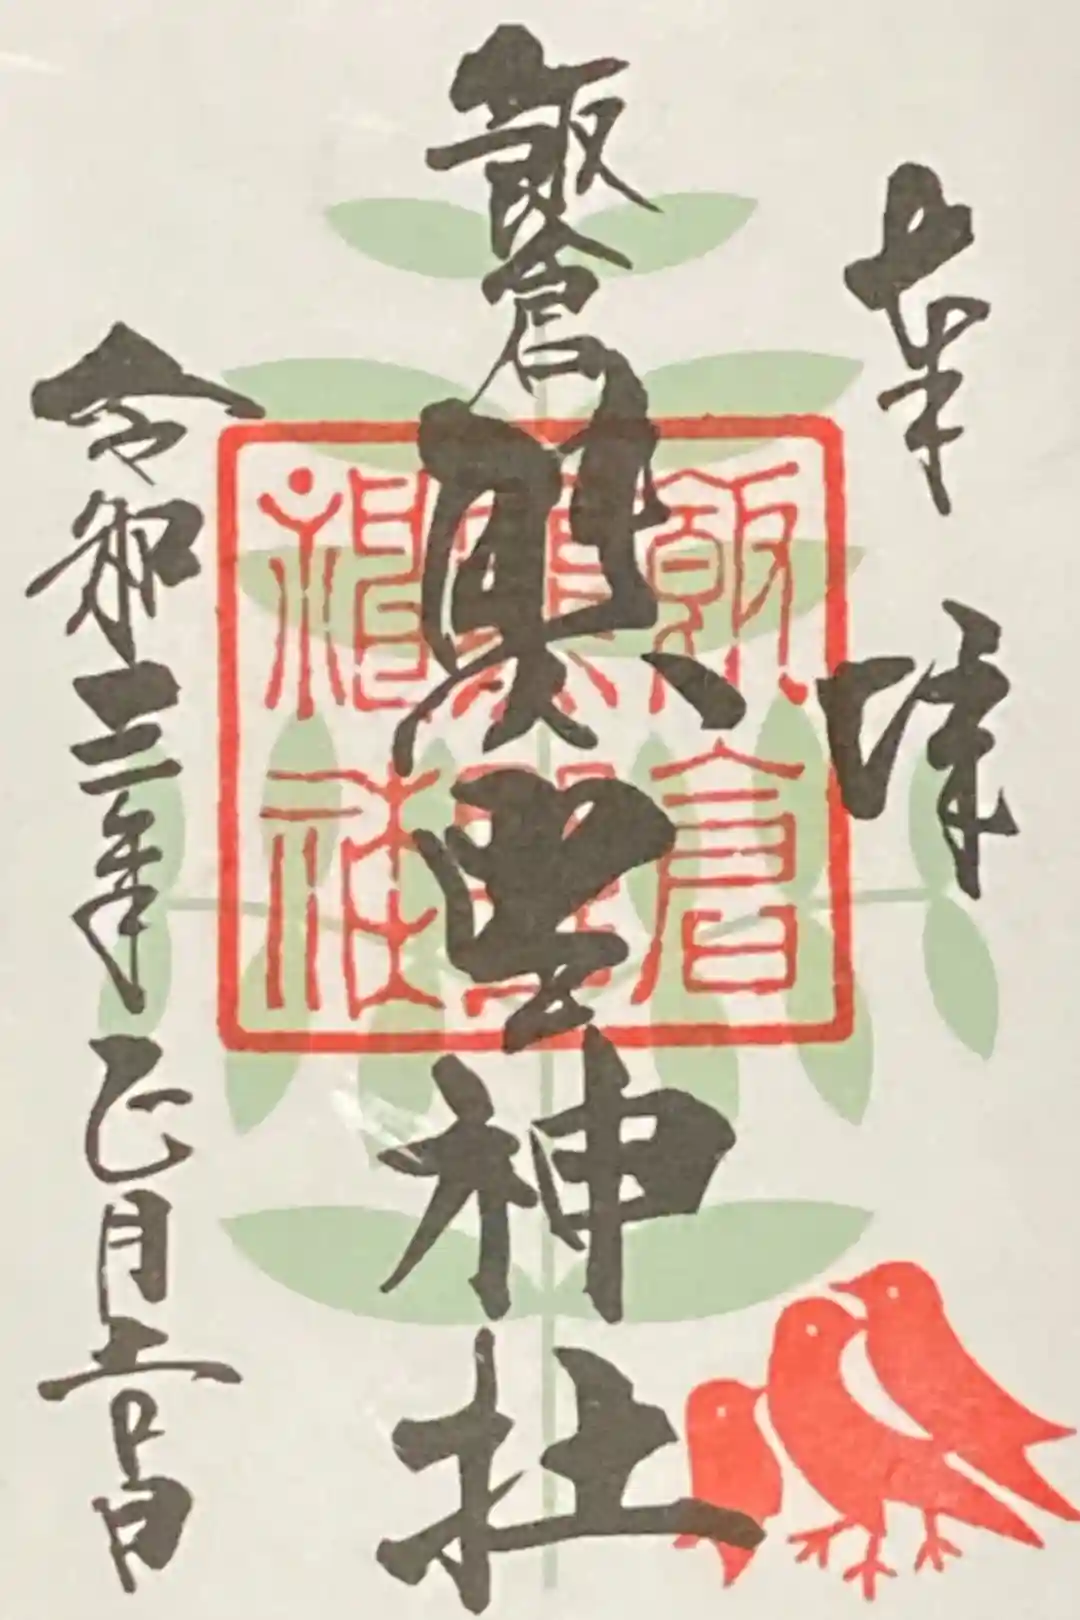 奉拝
飯倉熊野神社
飯倉熊野神社
令和三年正月吉日